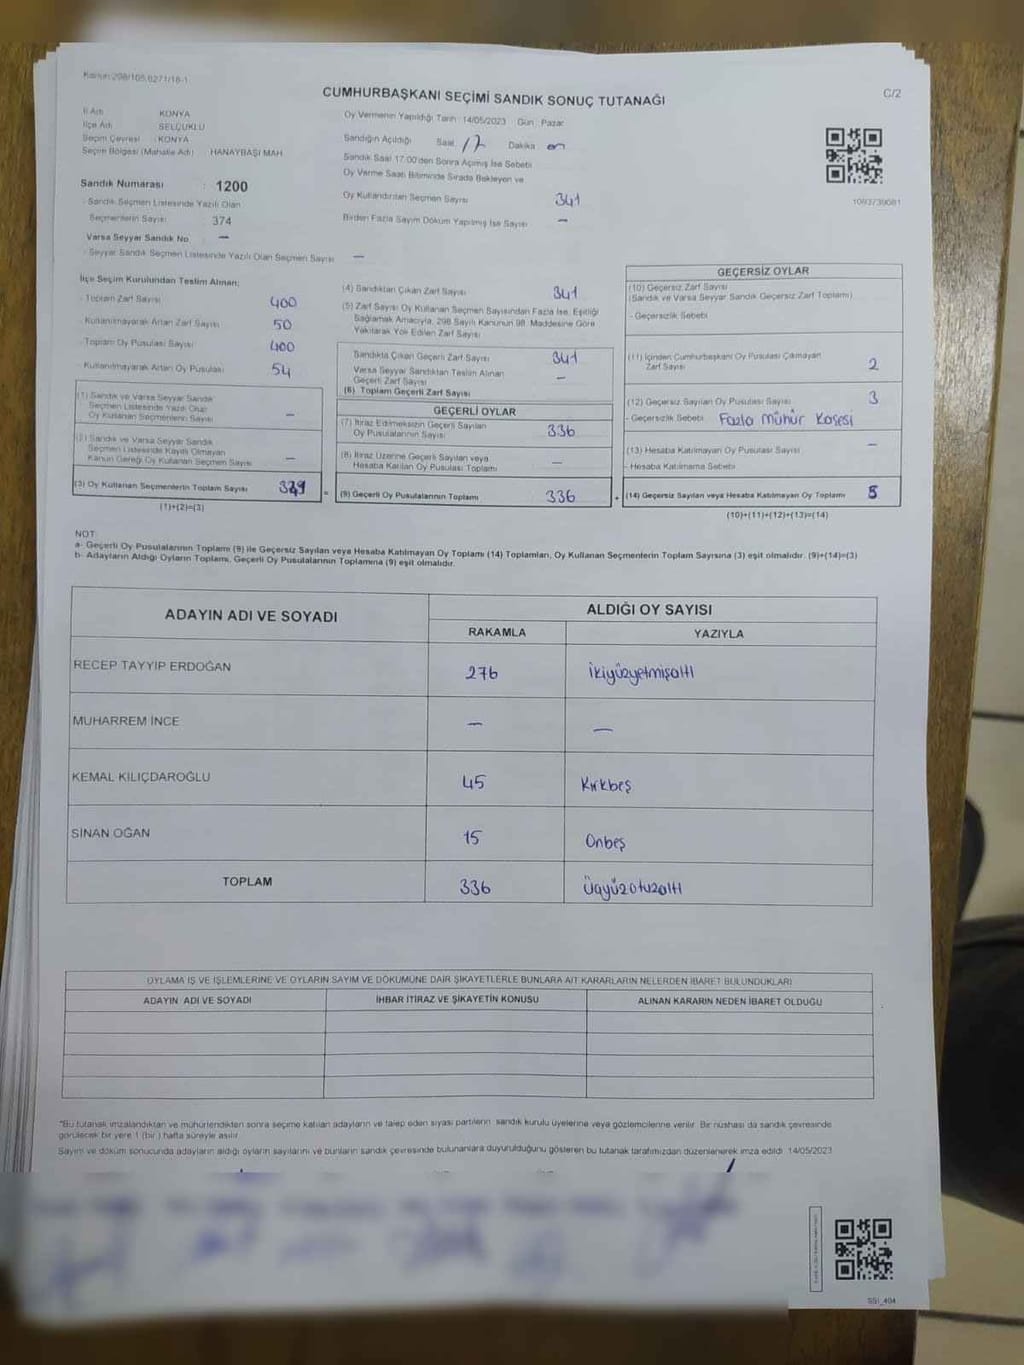 Kanun:298/105,6271/18-1
CUMHURBAŞKANI SEÇİMİ SANDIK SONUÇ TUTANAĞI
C/2
İl Adı KONYA
İlçe Adı SELÇUKLU
Seçim Çevresi KONYA
Seçim Bölgesi (Mahalle Adı) HANAYBAŞI MAH
Oy Vermenin Yapıldığı Tarih 14/05/2023 Gün Pazar
Sandığın Açıldığı Saat 17 Dakika
Sandık Saat 17:00'den Sonra Açılmış İse Sebebi
Oy Verme Saati Bitiminde Sırada Bekleyen ve
Oy Kullandırılan Seçmen Sayısı 341
Birden Fazla Sayım Döküm Yapılmış İse Sayısı —
1093739081
Sandık Numarası : 1200
- Sandık Seçmen Listesinde Yazılı Olan
Seçmenlerin Sayısı 374
Varsa Seyyar Sandık No —
- Seyyar Sandık Seçmen Listesinde Yazılı Olan Seçmen Sayısı —
İlçe Seçim Kurulundan Teslim Alınan;
- Toplam Zarf Sayısı 400
- Kullanılmayarak Artan Zarf Sayısı 50
- Toplam Oy Pusulası Sayısı 400
- Kullanılmayarak Artan Oy Pusulası 54
(1) Sandık ve Varsa Seyyar Sandık
Seçmen Listesinde Yazılı Olup
Oy Kullanan Seçmenlerin Sayısı —
(2) Sandık ve Varsa Seyyar Sandık
Seçmen Listesinde Kayıtlı Olmayan
Kanun Gereği Oy Kullanan Seçmen Sayısı —
(3) Oy Kullanan Seçmenlerin Toplam Sayısı
(1)+(2)=(3)
(4) Sandıktan Çıkan Zarf Sayısı 341
(5) Zarf Sayısı Oy Kullanan Seçmen Sayısından Fazla İse, Eşitliği
Sağlamak Amacıyla, 298 Sayılı Kanunun 98. Maddesine Göre
Yakılarak Yok Edilen Zarf Sayısı
Sandıkta Çıkan Geçerli Zarf Sayısı 341
Varsa Seyyar Sandıktan Teslim Alınan
Geçerli Zarf Sayısı —
(6) Toplam Geçerli Zarf Sayısı
GEÇERLİ OYLAR
(7) İtiraz Edilmeksizin Geçerli Sayılan
Oy Pusulalarının Sayısı 336
(8) İtiraz Üzerine Geçerli Sayılan veya
Hesaba Katılan Oy Pusulası Toplamı —
= (9) Geçerli Oy Pusulalarının Toplamı 336 +
GEÇERSİZ OYLAR
(10) Geçersiz Zarf Sayısı
(Sandık ve Varsa Seyyar Sandık Geçersiz Zarf Toplamı)
- Geçersizlik Sebebi
(11) İçinden Cumhurbaşkanı Oy Pusulası Çıkmayan
Zarf Sayısı 2
(12) Geçersiz Sayılan Oy Pusulası Sayısı 3
- Geçersizlik Sebebi Fazla Mühür Kaşesi
(13) Hesaba Katılmayan Oy Pusulası Sayısı —
- Hesaba Katılmama Sebebi
(14) Geçersiz Sayılan veya Hesaba Katılmayan Oy Toplamı 5
(10)+(11)+(12)+(13)=(14)
NOT
a- Geçerli Oy Pusulalarının Toplamı (9) ile Geçersiz Sayılan veya Hesaba Katılmayan Oy Toplamı (14) Toplamları, Oy Kullanan Seçmenlerin Toplam Sayısına (3) eşit olmalıdır. (9)+(14)=(3)
b- Adayların Aldığı Oyların Toplamı, Geçerli Oy Pusulalarının Toplamına (9) eşit olmalıdır.
ADAYIN ADI VE SOYADI ALDIĞI OY SAYISI
RAKAMLA YAZIYLA
RECEP TAYYİP ERDOĞAN 276 ikiyüzyetmişaltı
MUHARREM İNCE — —
KEMAL KILIÇDAROĞLU 45 Kırkbeş
SİNAN OĞAN 15 Onbeş
TOPLAM 336 Üçyüzotuzaltı
OYLAMA İŞ VE İŞLEMLERİNE VE OYLARIN SAYIM VE DÖKÜMÜNE DAİR ŞİKAYETLERLE BUNLARA AİT KARARLARIN NELERDEN İBARET BULUNDUKLARI
ADAYIN ADI VE SOYADI İHBAR İTİRAZ VE ŞİKAYETİN KONUSU ALINAN KARARIN NEDEN İBARET OLDUĞU
*Bu tutanak imzalandıktan ve mühürlendikten sonra seçime katılan adayların ve talep eden siyasi partilerin sandık kurulu üyelerine veya gözlemcilerine verilir. Bir nüshası da sandık çevresinde
görülecek bir yere 1 (bir ) hafta süreyle asılır.
Sayım ve döküm sonucunda adayların aldığı oyların sayılarını ve bunların sandık çevresinde bulunanlara duyurulduğunu gösteren bu tutanak tarafımızdan düzenlenerek imza edildi 14/05/2023
SSI_404